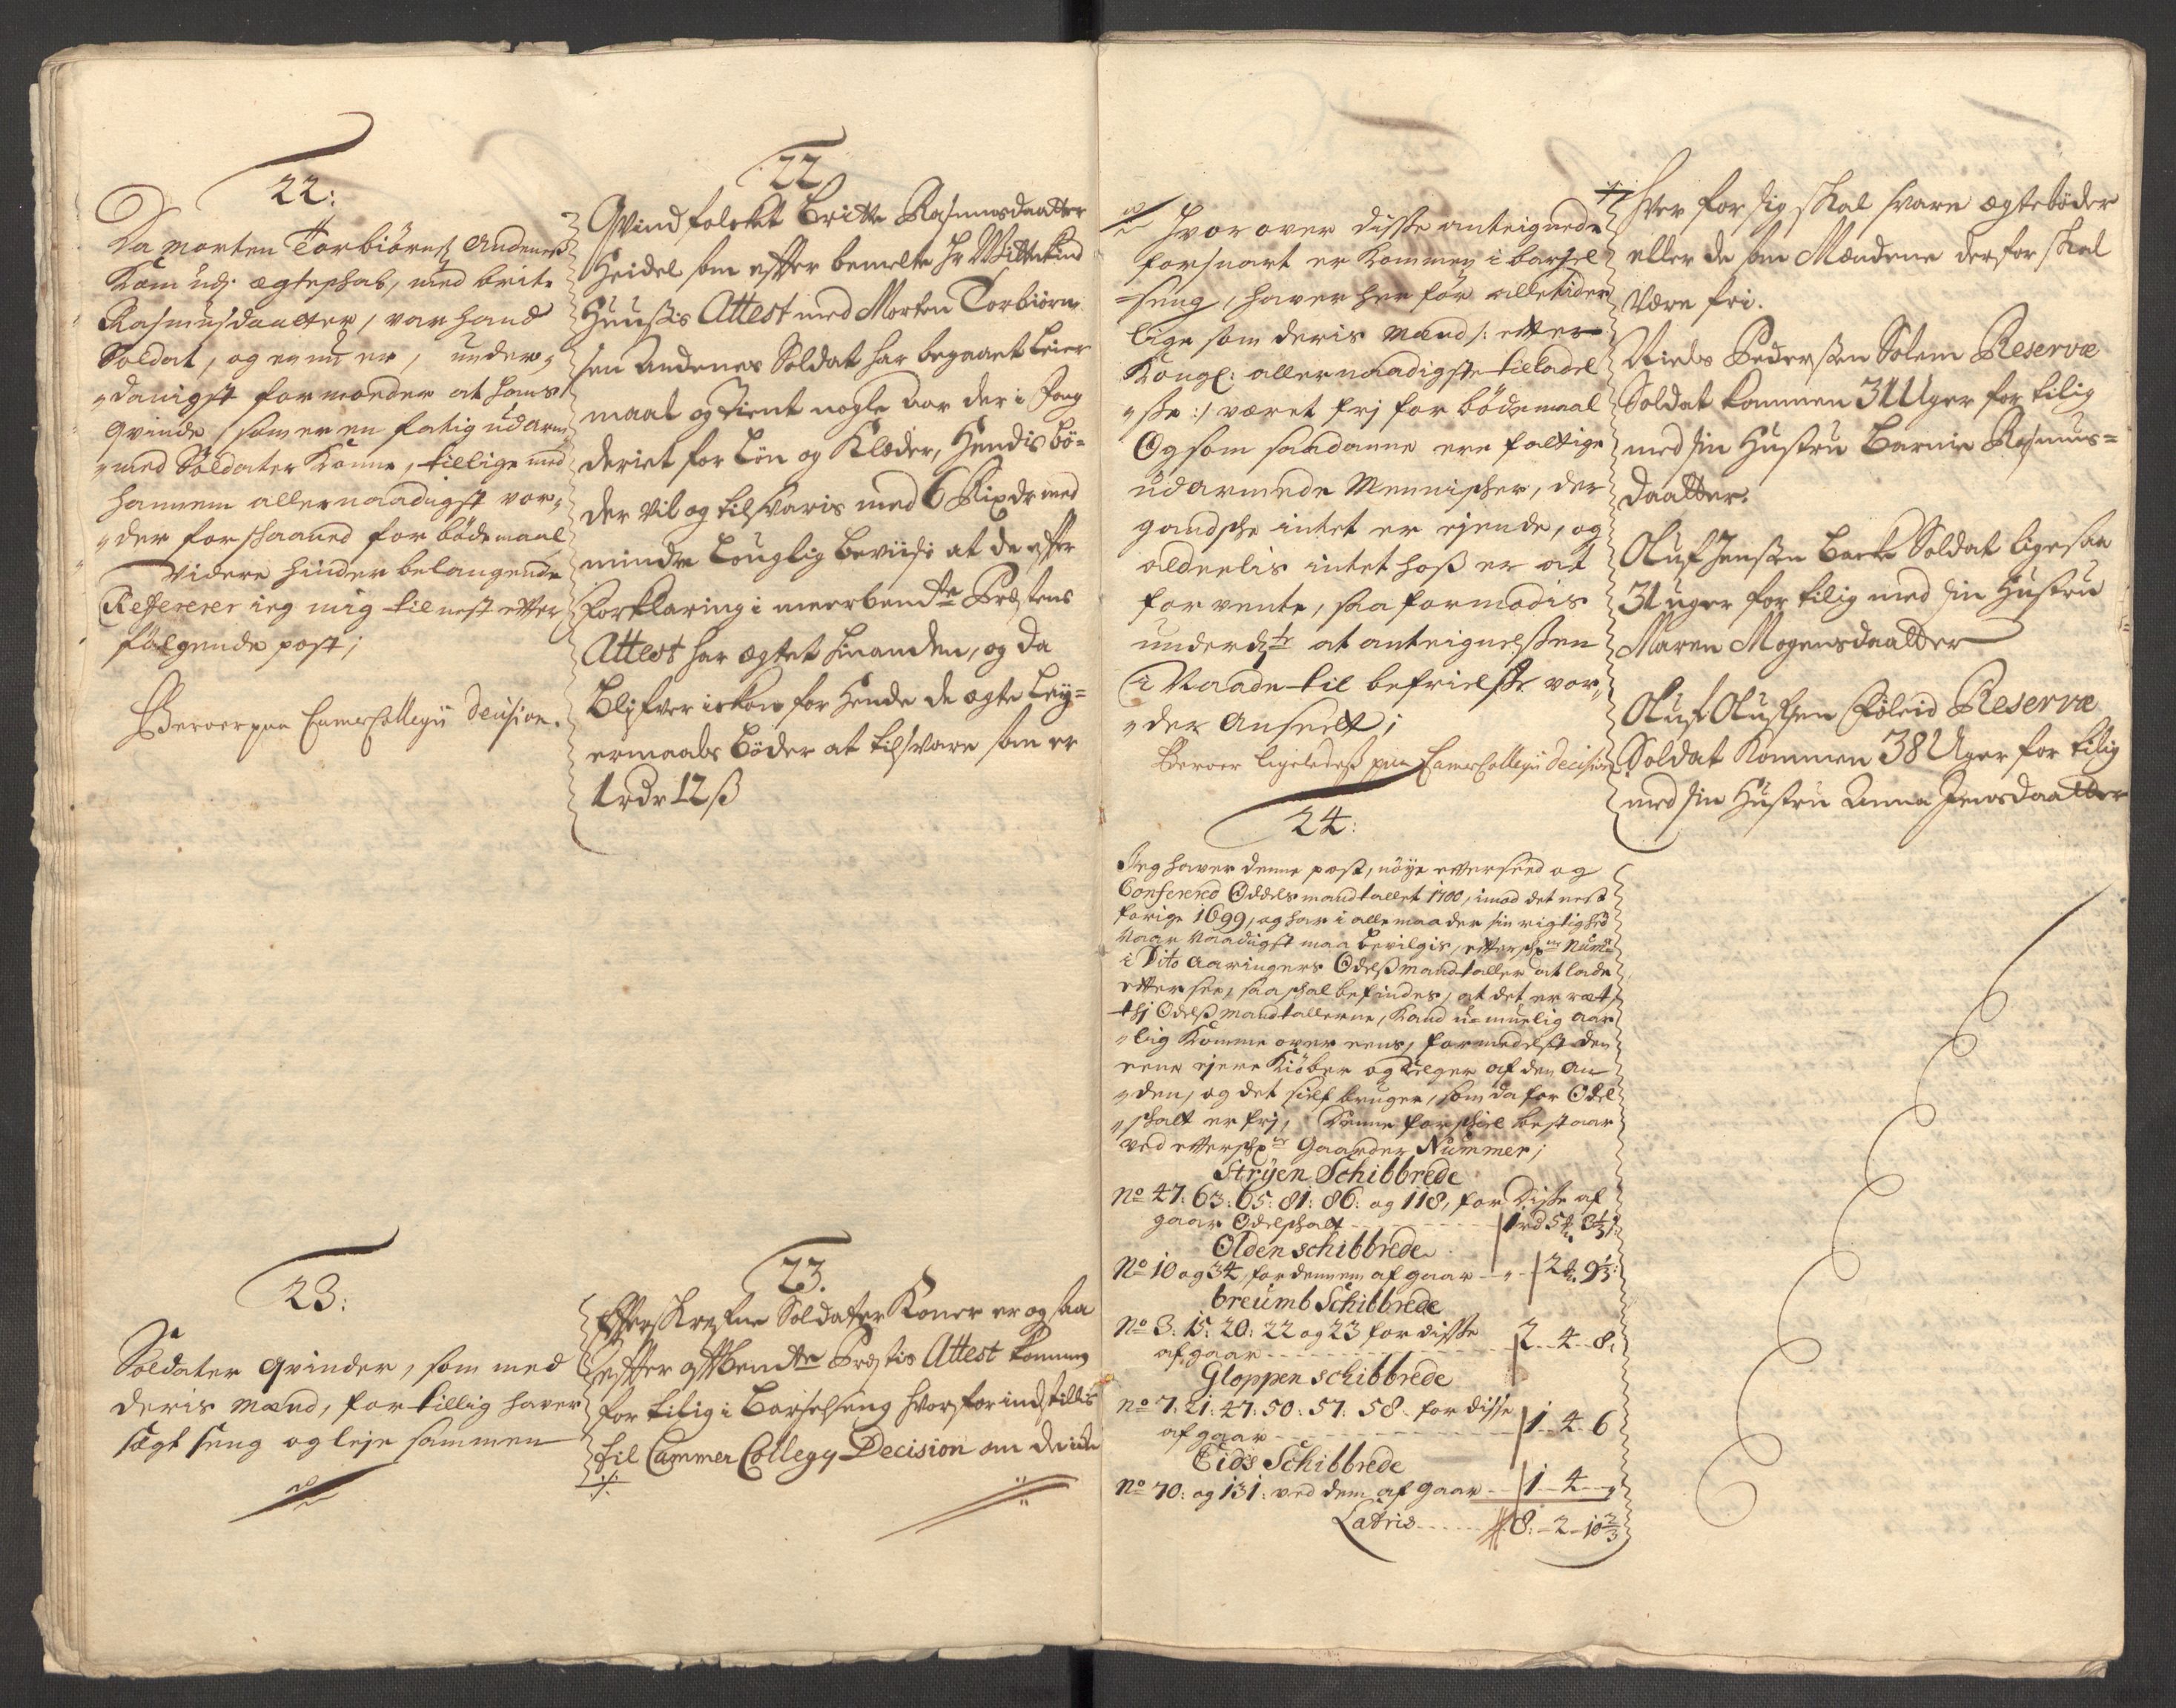 22:
Da morten Torbiørnß Andenes
Kom udj ægteschab, med brite
Rasmusdaatter, var hand
Soldat, og ennu er, under„
„danigst formoder at hans
qvinde, som er en fatig udarm
„med Soldater Konne, tillige med
hannem allernaadigst vor„
„der forschaaned for bødemaal
Videre hinder belangende
Refererer ieg mig til nest efter
følgende post;
Beroer paa CamerCollegii Decision.
23:
Soldater qvinder, som med
deris mænd, for tillig haver
søgt seng og leje sammen
22
Qvindfolcket Britte Rasmusdaatter
Heidel som efter bemelte Hr Wittekind
Huußis Attest med Morten Torbiørn
sen Andenes Soldat har begaaet Leier
maal og tient nogle aar der i Fog
deriet for Løn og Klæder, Hendis bø=
der vil og tilsvaris med 6 Rixdr med
mindre Louglig beviisis at de efter
forklaring i meerbemte Præstens
Attest har ægtet hinanden, og da
blifver ickon for hende de ægte Ley=
ermaals bøder at tilsvare som er
1 rdr 12 ß
23.
Efterskrefne Soldater Koner er og saa
efter oftbemte Præstis Attest kommen
for tilig i Barselseng hvorfor indstillis
til Cammer Collegy Decision om de icke
./.
Hvor over disse anteignede
forsnart er kommen i barsel
=seng, haver her før alletider
lige som deris mænd /: efter
Kongl: allernaadigste tilladel
„sse :/ været frj for bødemaal
Og som saadanne ere fattige
udarmede Mennischer, der
gandsche intet er ejende, og
aldeelis intet hoß er at
forvente, saa formodis
underdte at anteignelssen
i Naade til befrielsse vor„
„der Anseelt;
Beroer ligeledeß paa CamerCollegii decision
24:
Jeg haver denne post, nøye efterseed og
Conferered Oddelsmandtallet 1700, imod det nest
forige 1699, og har i alle maader sin rigtighed
Naar Naadigst maa bevilgis, efterschne Num„
i Dito aaringers Odelßmandtaller at lade
efter see, saa schal befindes, at det er ræt,
thj Odelßmandtallerne, Kand u-muelig aar
„lig Komme over eens, formedelst den
eene ejere Kiøber og selger af den An
„den, og det self bruger, som da for Odel
„schatt er frj, denne forschiel bestaar
ved efterschne Gaarders Nummer;
Stryen Schibbrede
No 47: 63: 65: 81: 86: og 118, for disse af
gaar Odelschatt - - - 1 rd 5 ₻ 3 1/3 ß
Olden schibbrede
No 10 og 34, for dennem af gaar - „ - 2 ₻ 9 1/3
breümb Schibbrede
No 3: 15: 20: 22 og 23 for disse
af gaar - - - 2 - 4 - 8,
Gloppen schibbrede
no 7: 21: 47: 50: 57: 58: for disse
af gaar - - - 1 - 4 - 6
Eids Schibbrede
No 70: og 131: ved dem af gaar - - 1 - 4 - „
Latris - - - 8: - 2 - 10 2/3
./. Hver for sig skal svare ægtebøder
eller de som Mændene derfor skal
være fri.
Niels Pederssen Solem Reservæ
Soldat kommen 31 Uger for tilig
med sin Hustru Barnie Rasmus=
daatter.
Oluf Jenssen Barke Soldat ligesaa
31 uger for tilig med sin Hustru
Maren Mogensdaatter
Oluf Olufsen Føleid Reservæ
Soldat Kommen 38 Uger for tilig
med sin Hustru Anna Jensdaatter